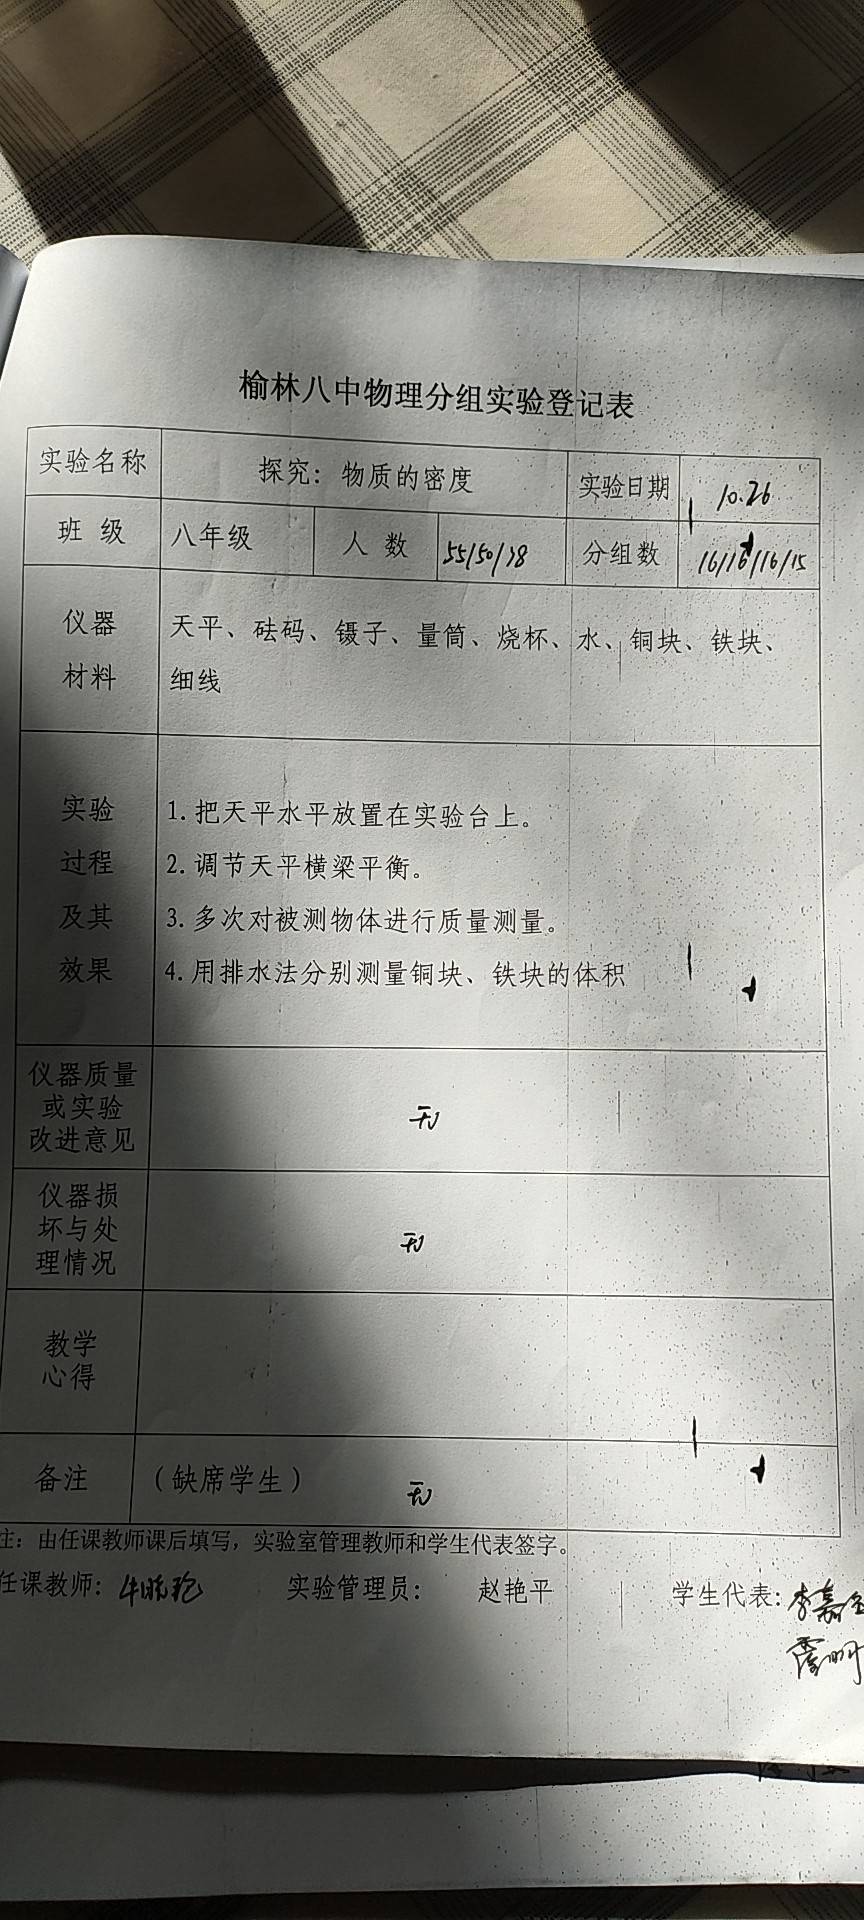 榆林八中物理分组实验登记表
实验名称 探究：物质的密度 实验日期 10.26
班 级 八年级 人 数 55/50/38 分组数 16/16/16/15
仪器 天平、砝码、镊子、量筒、烧杯、水、铜块、铁块、
材料 细线
实验 1.把天平水平放置在实验台上。
过程 2.调节天平横梁平衡。
及其 3.多次对被测物体进行质量测量。
效果 4.用排水法分别测量铜块、铁块的体积
仪器质量
或实验 无
改进意见
仪器损
坏与处 无
理情况
教学
心得
备注 （缺席学生） 无
注：由任课教师课后填写，实验室管理教师和学生代表签字。
任课教师： 实验管理员： 赵艳平 学生代表：李嘉